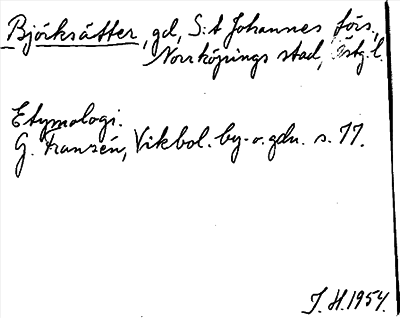 Björksätter, gd, S:t Johannes förs.,
Norrköpings stad, Östg. l.
Etymologi.
G. Franzén, Vikbol. by- o. gdn. s. 77.
J. H. 1954.